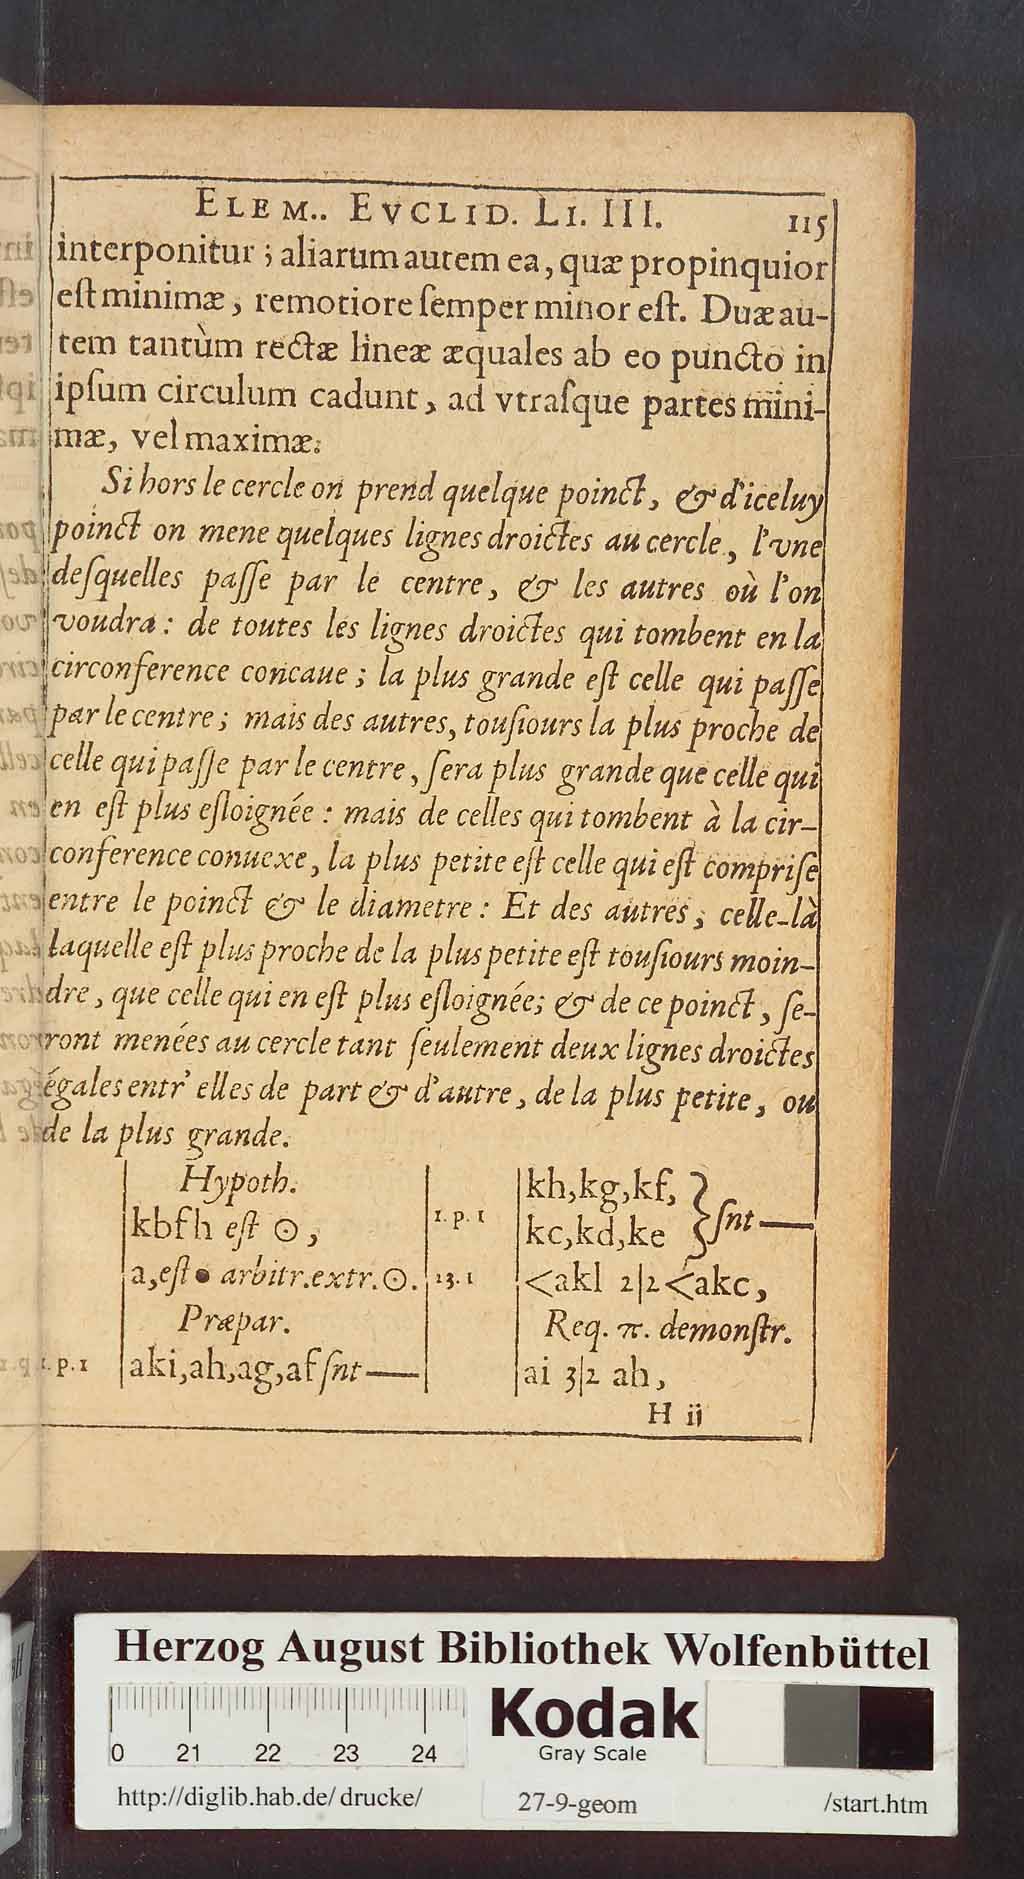 ELEM.. EVCLID. LI. III. 115
interponitur ; aliarum autem ea, quæ propinquior
eſt minimæ, remotiore ſemper minor eſt. Duæ au-
tem tantùm rectæ lineæ æquales ab eo puncto in
ipſum circulum cadunt, ad vtraſque partes mini-
mæ, vel maximæ.
Si hors le cercle on prend quelque poinct, & d'iceluy
poinct on mene quelques lignes droictes au cercle, l'vne
deſquelles paſſe par le centre, & les autres où l'on
voudra : de toutes les lignes droictes qui tombent en la
circonference concaue ; la plus grande eſt celle qui paſſe
par le centre ; mais des autres, touſiours la plus proche de
celle qui paſſe par le centre, ſera plus grande que celle qui
en eſt plus eſloignée : mais de celles qui tombent à la cir-
conference conuexe, la plus petite eſt celle qui eſt compriſe
entre le poinct & le diametre : Et des autres, celle-là
laquelle eſt plus proche de la plus petite eſt touſiours moin-
dre, que celle qui en eſt plus eſloignée; & de ce poinct, ſe-
ront menées au cercle tant ſeulement deux lignes droictes
égales entr' elles de part & d'autre, de la plus petite, ou
de la plus grande.
Hypoth.
kbfh eſt ⊙,
a, eſt • arbitr. extr. ⊙.
Præpar.
1. p. 1 aki, ah, ag, af ſnt —
1. p. 1 kh, kg, kf,
kc, kd, ke } ſnt —
13. 1 <akl 2|2 <akc,
Req. π. demonſtr.
ai 3|2 ah,
H ij
Herzog August Bibliothek Wolfenbüttel
0 21 22 23 24
Kodak
Gray Scale
http://diglib.hab.de/ drucke/ 27-9-geom /start.htm